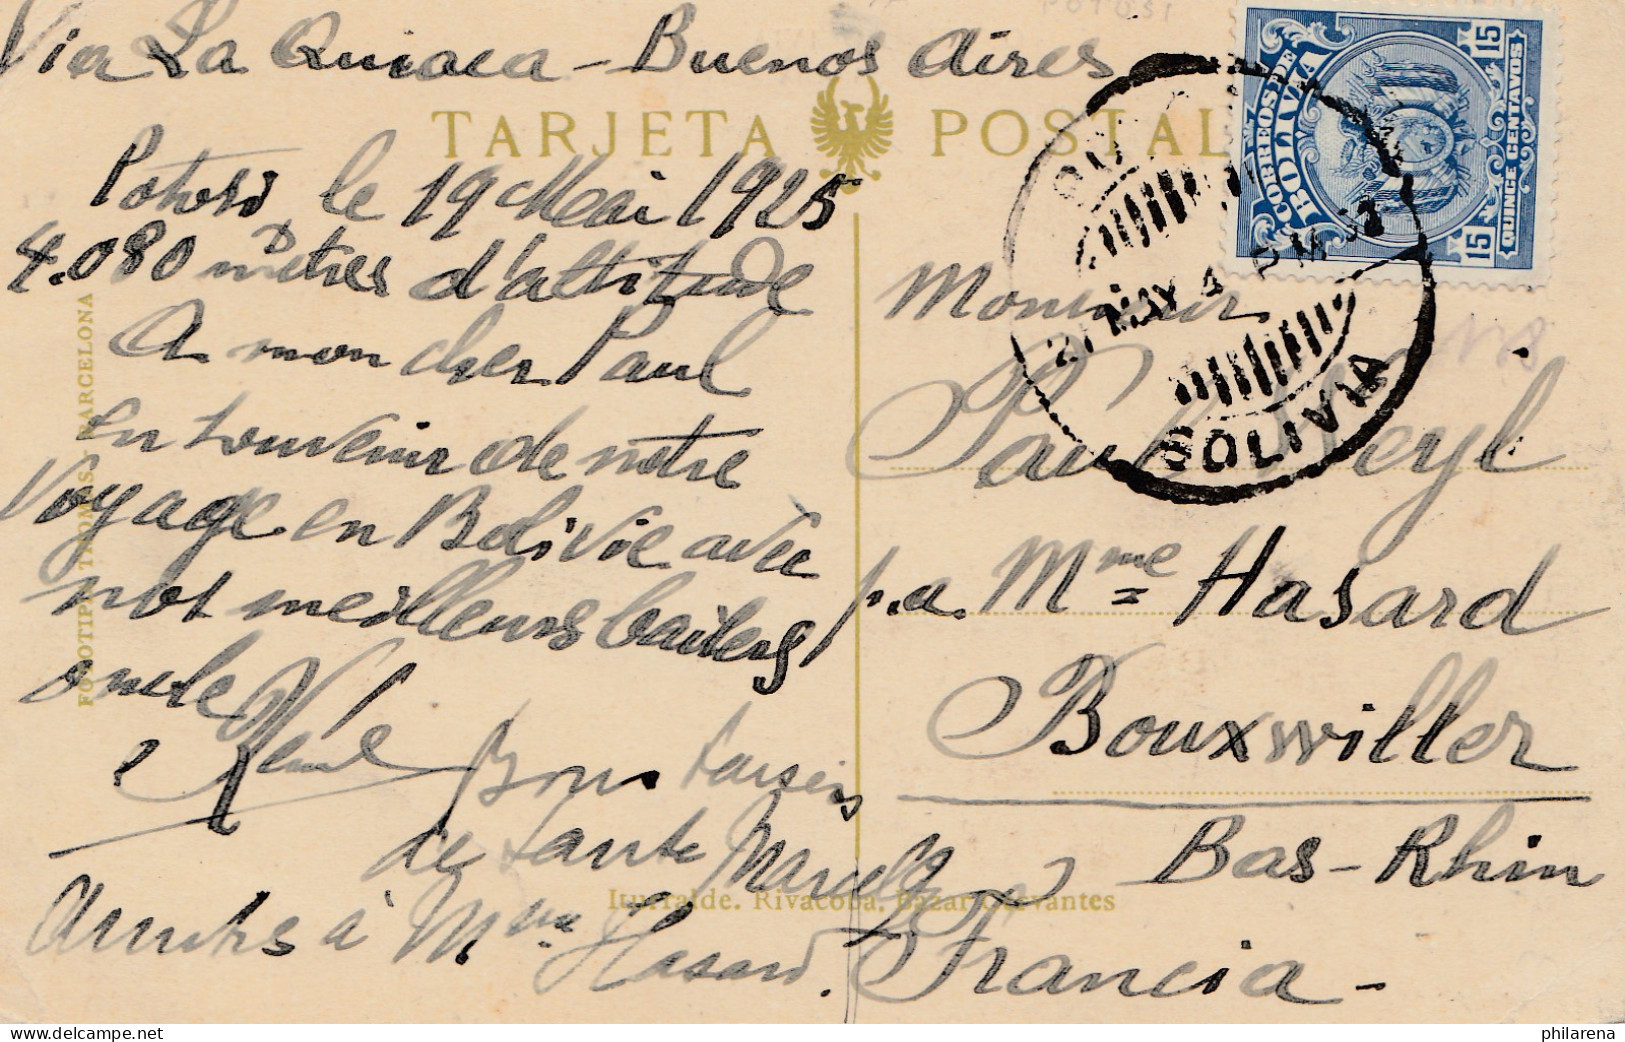 Via La Quiaca - Buenos Aires
POTOSI
TARJETA POSTAL
CORREOS DE
BOLIVIA
15 15
QUINCE CENTAVOS
21 MAY 4 PM
BOLIVIA
Potosi le 19 Mai 1925
4.080 mètres d'altitude
A mon cher Paul
en souvenir de notre
voyage en Bolivie avec
nos meilleurs baisers
oncle René
Bons baisers
de tante Marcelle
Amitiés à Mme Hasard.
Monsieur
Paul Weyl
p.a. Mme Hasard
Bouxwiller
Bas-Rhin
Francia -
FOTOTIPIA THOMAS - BARCELONA
Iturralde. Rivacoba. Bazar Cervantes
philarena